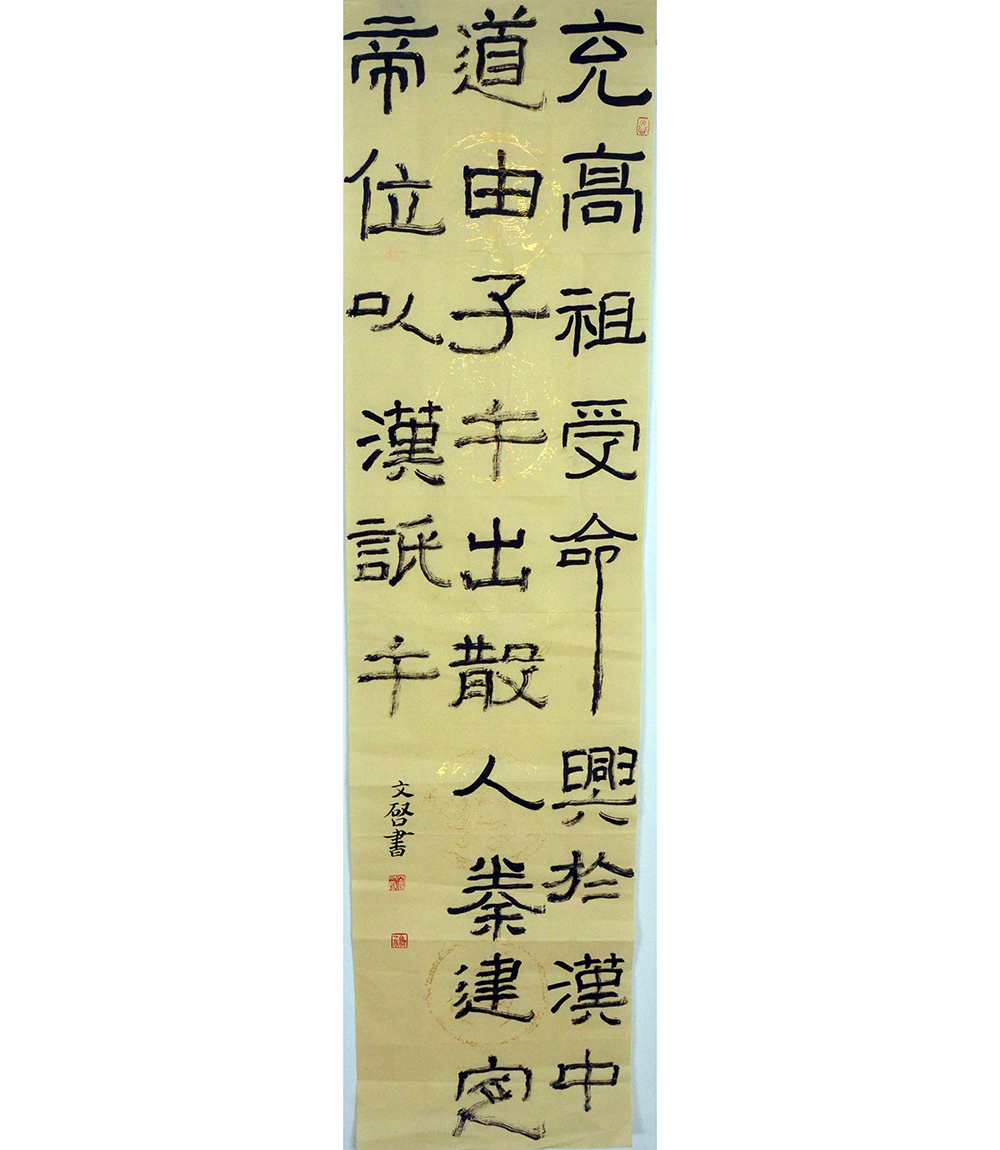 充高祖受命興於漢中
道由子午出散人秦建定
帝位以漢詆午
文啓書